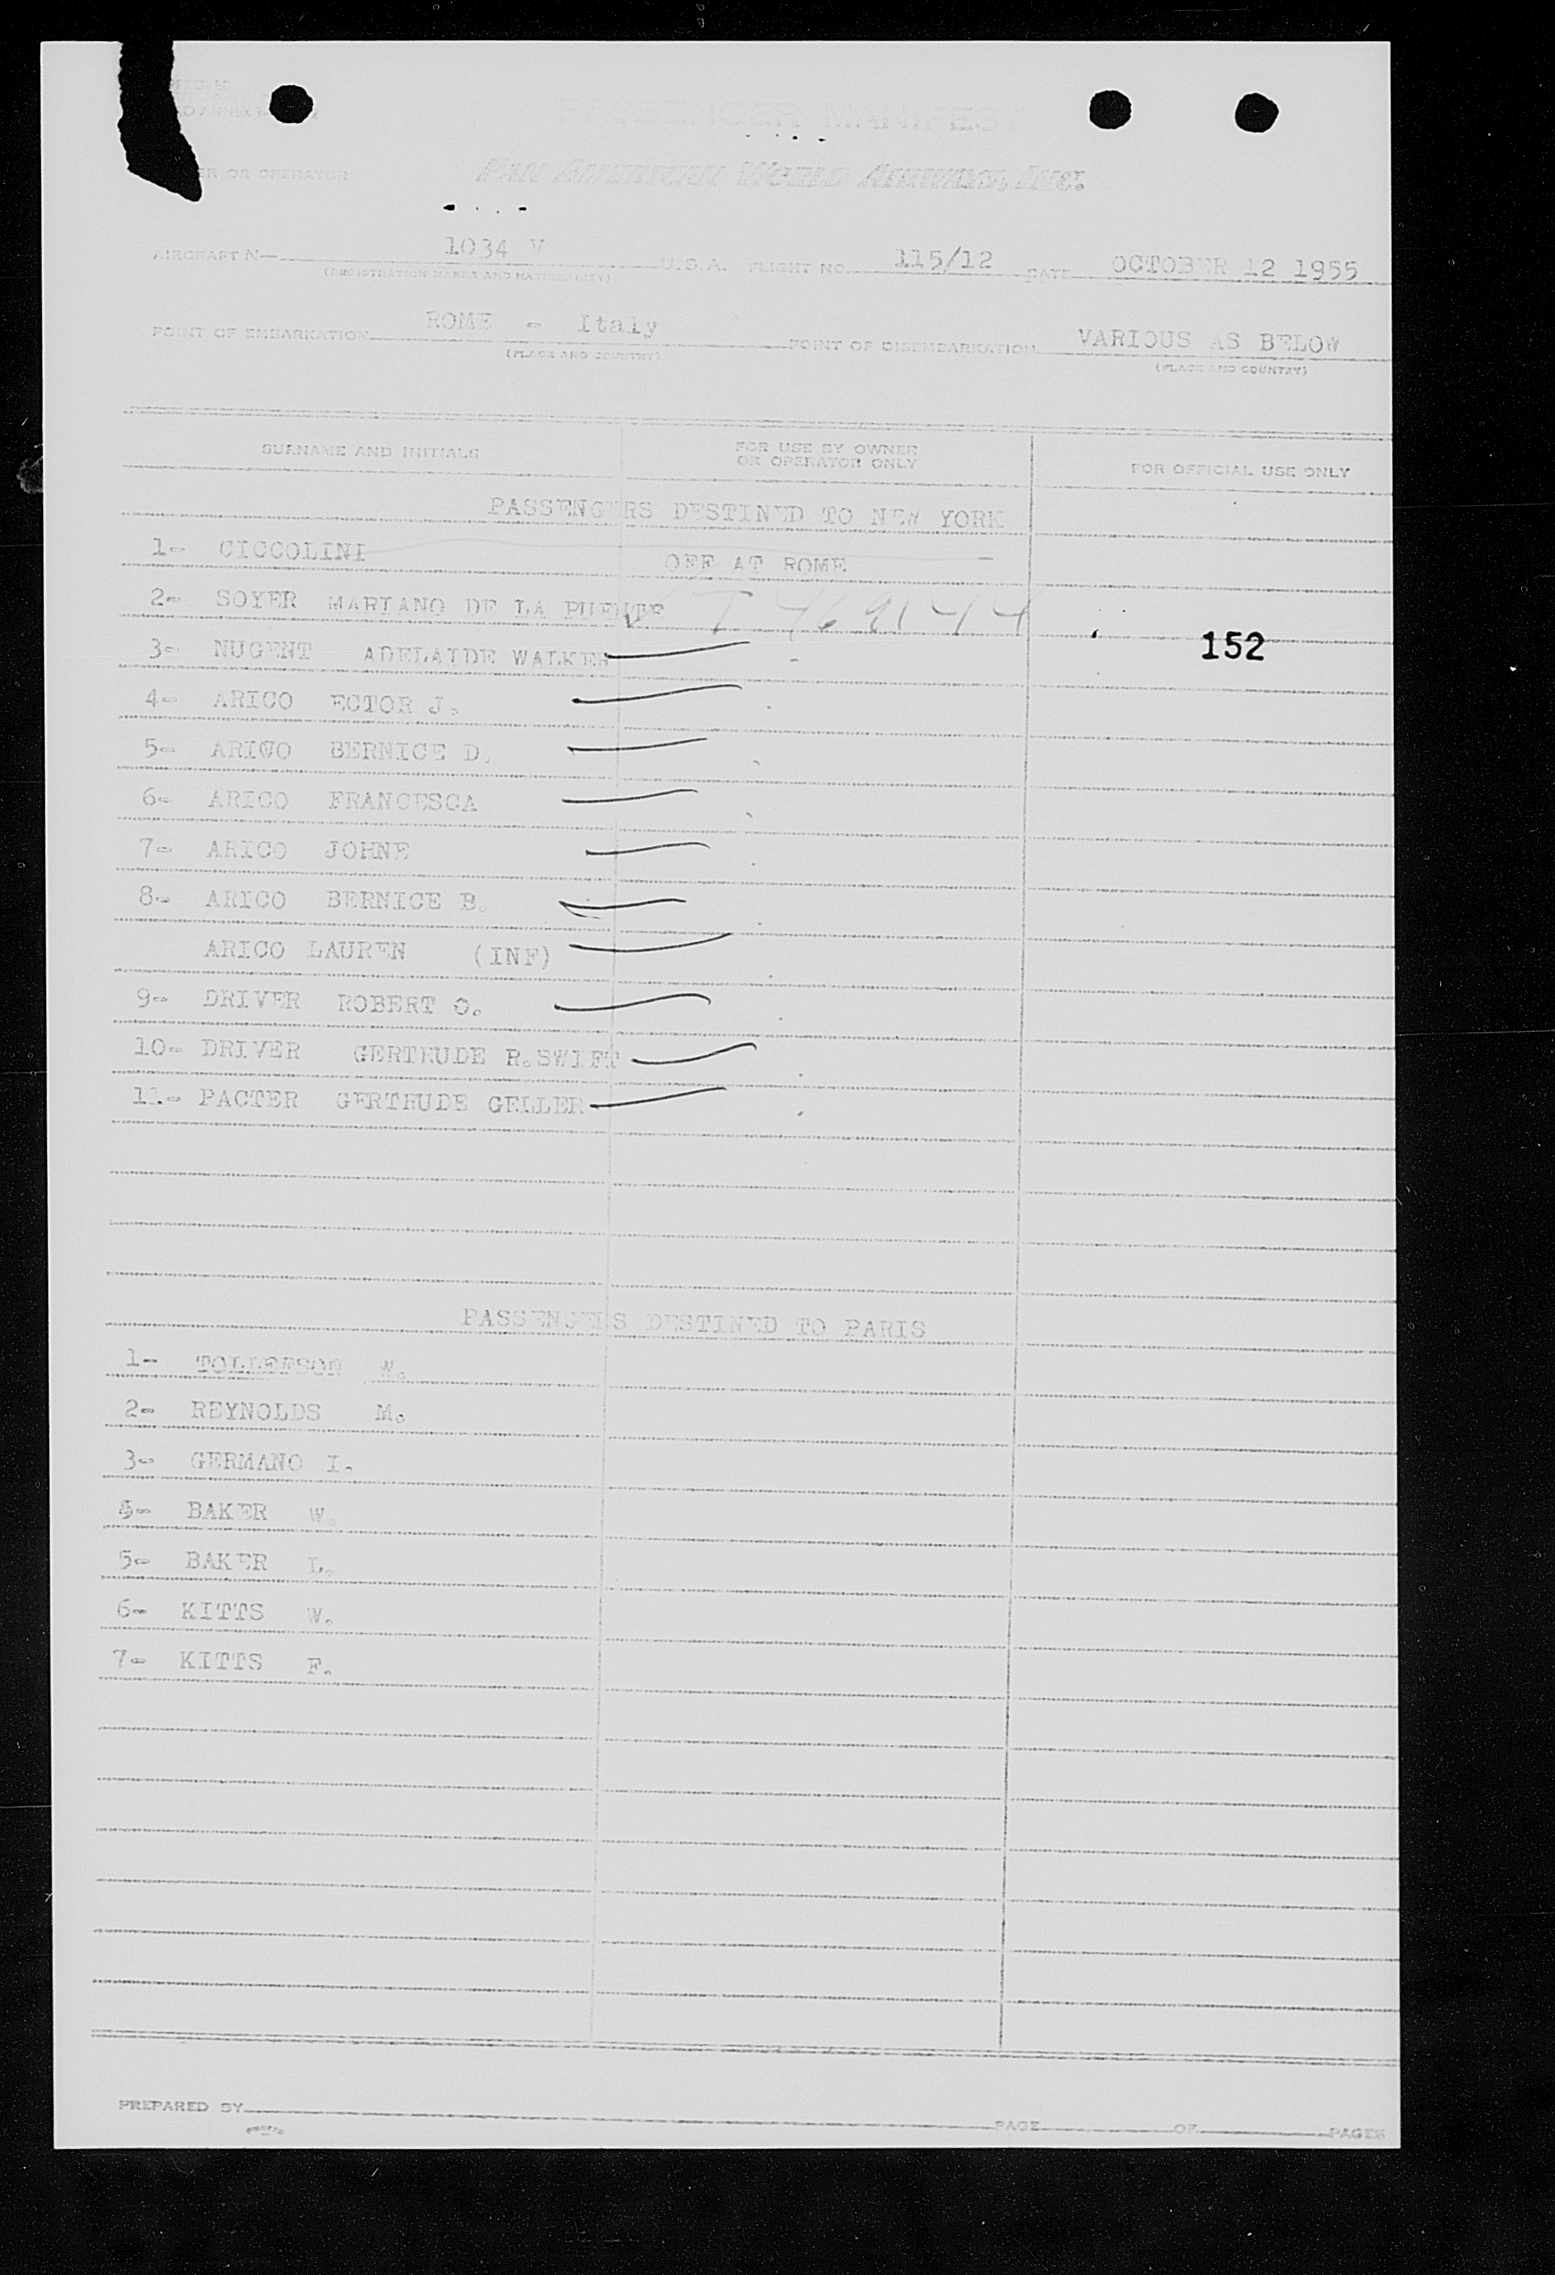 PASSENGER MANIFEST
ER OR OPERATOR PAN AMERICAN WORLD AIRWAYS, INC.
AIRCRAFT N— 1034 V U.S.A. FLIGHT NO. 115/12 DATE OCTOBER 12 1955
(REGISTRATION MARKS AND NATIONALITY)
POINT OF EMBARKATION ROME - Italy POINT OF DISEMBARKATION VARIOUS AS BELOW
(PLACE AND COUNTRY) (PLACE AND COUNTRY)
SURNAME AND INITIALS FOR USE BY OWNER OR OPERATOR ONLY FOR OFFICIAL USE ONLY
PASSENGERS DESTINED TO NEW YORK
1- CICCOLINI OFF AT ROME
2- SOYER MARIANO DE LA PUENTE
3- NUGENT ADELAIDE WALKER 152
4- ARICO ECTOR J.
5- ARICO BERNICE D.
6- ARICO FRANCESCA
7- ARICO JOHNE
8- ARICO BERNICE B.
ARICO LAUREN (INF)
9- DRIVER ROBERT O.
10- DRIVER GERTRUDE R.SWIFT
11- PACTER GERTRUDE GELLER
PASSENGERS DESTINED TO PARIS
1- TOLLEFSON W.
2- REYNOLDS M.
3- GERMANO I.
4- BAKER W.
5- BAKER L.
6- KITTS W.
7- KITTS F.
PREPARED BY PAGE OF PAGES